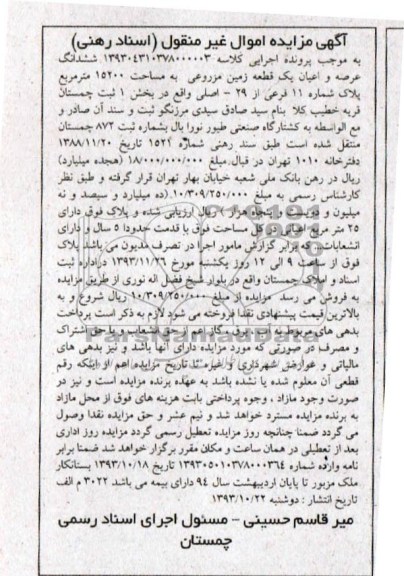 آگهی مزایده اموال غیر منقول (اسناد رهنی)
به موجب پرونده اجرایی کلاسه ۱۳۹۳۰۴۳۱۰۳۷۸۰۰۰۰۰۳ ششدانگ
عرصه و اعیان یک قطعه زمین مزروعی به مساحت ۱۵۲۰۰ مترمربع
پلاک شماره ۱۱ فرعی از ۲۹ - اصلی واقع در بخش ۱ ثبت چمستان
قریه خطیب کلا بنام سید صادق سیدی مرزنگو ثبت و سند آن صادر و
مع الواسطه به کشتارگاه صنعتی طیور نورا بال بشماره ثبت ۸۷۲ چمستان
منتقل شده است طبق سند رهنی شماره ۱۵۲۱ تاریخ ۱۳۸۸/۱۱/۲۰
دفترخانه ۱۰۱۰ تهران در قبال مبلغ ۱۸/۰۰۰/۰۰۰/۰۰۰ (هجده میلیارد)
ریال در رهن بانک ملی شعبه خیابان بهار تهران قرار گرفته و طبق نظر
کارشناس رسمی به مبلغ ۱۰/۳۰۹/۲۵۰/۰۰۰ (ده میلیارد و سیصد و نه
میلیون و دویست و پنجاه هزار) ریال ارزیابی شده و پلاک فوق دارای
۲۵ متر مربع اعیانی و کل مساحت فوق با قدمت حدودا ۵ سال و دارای
انشعابات... که برابر گزارش مامور اجرا در تصرف مدیون می باشد پلاک
فوق از ساعت ۹ الی ۱۲ روز یکشنبه مورخ ۱۳۹۳/۱۱/۲۶ در اداره ثبت
اسناد و املاک چمستان واقع در بلوار شیخ فضل اله نوری از طریق مزایده
به فروش می رسد مزایده از مبلغ ۱۰/۳۰۹/۲۵۰/۰۰۰ ریال شروع و به
بالاترین قیمت پیشنهادی نقدا فروخته می شود لازم به ذکر است پرداخت
بدهی های مربوط به آب، برق، گاز اعم از حق انشعاب و یا حق اشتراک
و مصرف در صورتی که مورد مزایده دارای آنها باشد و نیز بدهی های
مالیاتی و عوارض شهرداری و غیره تا تاریخ مزایده اعم از اینکه رقم
قطعی آن معلوم شده یا نشده باشد به عهده برنده مزایده است و نیز در
صورت وجود مازاد ، وجوه پرداختی بابت هزینه های فوق از محل مازاد
به برنده مزایده مسترد خواهد شد و نیم عشر و حق مزایده نقدا وصول
می گردد ضمنا چنانچه روز مزایده تعطیل رسمی گردد مزایده روز اداری
بعد از تعطیلی در همان ساعت و مکان مقرر برگزار خواهد شد ضمنا برابر
نامه وارده شماره ۱۳۹۳۰۵۰۱۰۳۷۸۰۰۰۳۶۴ تاریخ ۱۳۹۳/۱۰/۱۸ بستانکار
ملک مزبور تا پایان اردیبهشت سال ۹۴ دارای بیمه می باشد ۳۰۲۲ م الف
تاریخ انتشار : دوشنبه ۱۳۹۳/۱۰/۲۲
میر قاسم حسینی - مسئول اجرای اسناد رسمی
چمستان
ParsNamadData